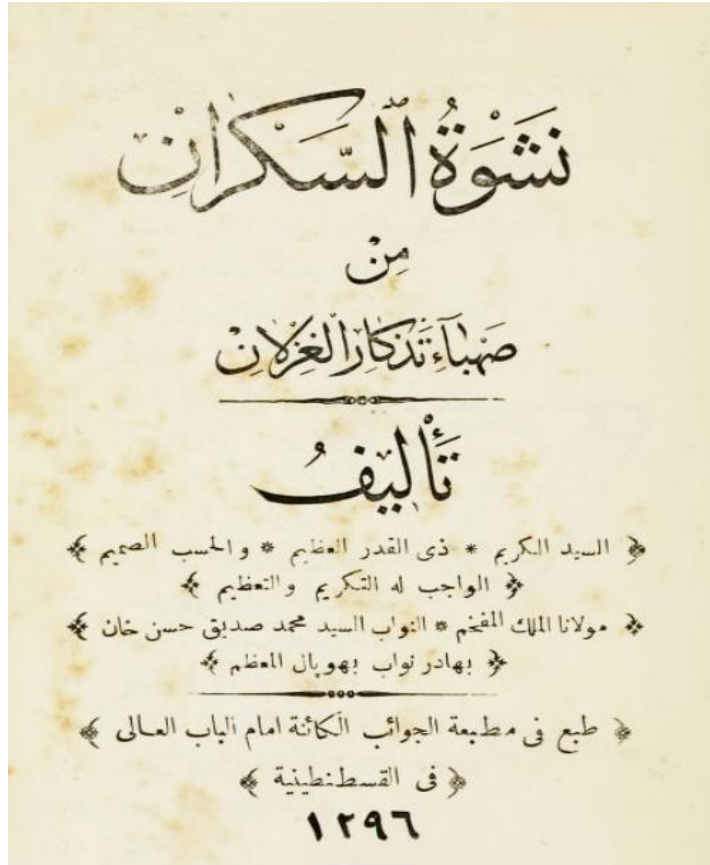 نَشْوَةُ السَّكْرَانِ
مِنْ
صَهْبَآءِ تَذْكَارِ الْغِزْلَانِ
تَأْلِيفُ
﴿ السيد الكريم * ذى القدر العظيم * والحسب الصميم ﴾
﴿ الواجب له التكريم والتعظيم ﴾
﴿ مولانا الملك المفخم * النواب السيد محمد صديق حسن خان ﴾
﴿ بهادر نواب بهوپال المعظم ﴾
﴿ طبع فى مطبعة الجوائب الكائنة امام الباب العالى ﴾
﴿ فى القسطنطينية ﴾
١٢٩٦